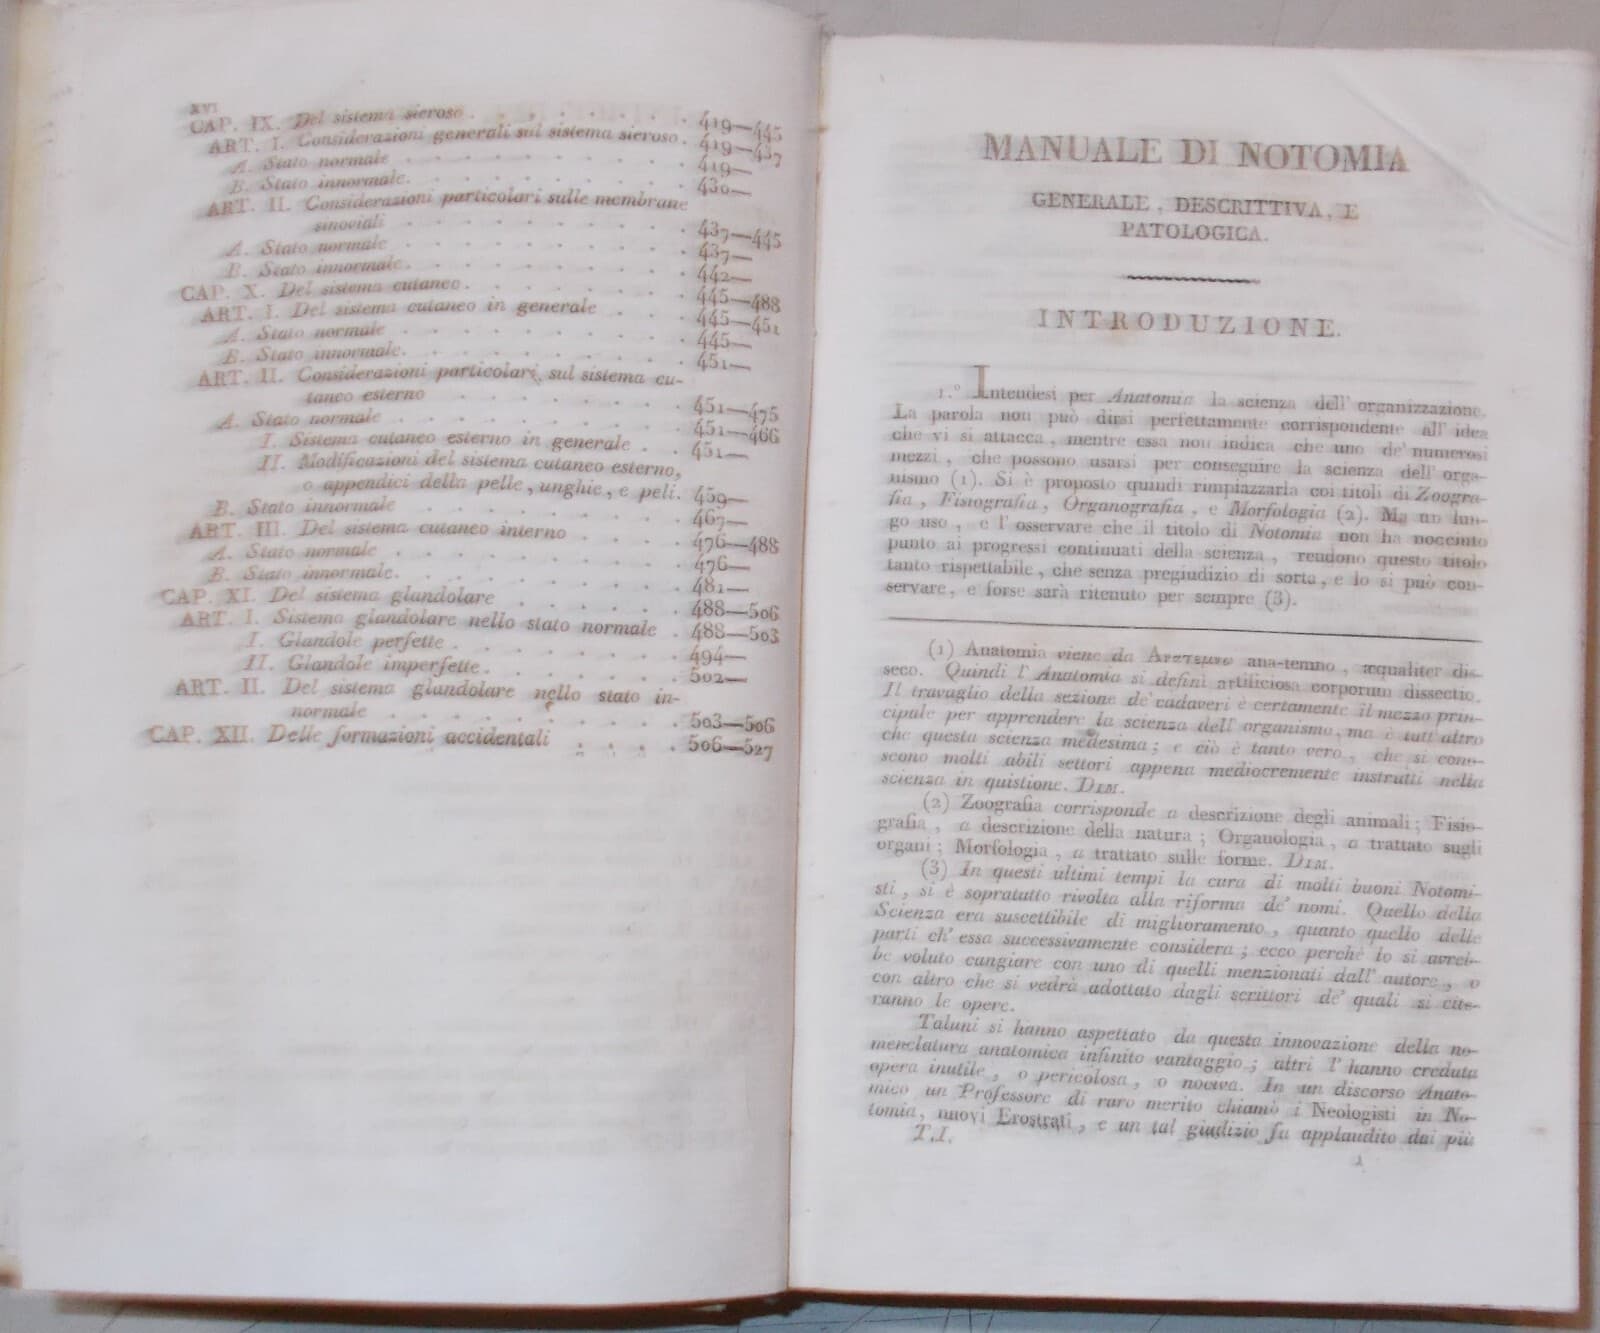 XVI
CAP. IX. Del sistema sieroso . . . . . . . 419—445
ART. I. Considerazioni generali sul sistema sieroso. 419—437
A. Stato normale . . . . . . . . 419—
B. Stato innormale. . . . . . . . 430—
ART. II. Considerazioni particolari sulle membrane
sinoviali . . . . . . . . 437—445
A. Stato normale . . . . . . . . 437—
B. Stato innormale. . . . . . . . 442—
CAP. X. Del sistema cutaneo. . . . . . . 445—488
ART. I. Del sistema cutaneo in generale . . . 445—451
A. Stato normale . . . . . . . . 445—
B. Stato innormale. . . . . . . . 451—
ART. II. Considerazioni particolari sul sistema cu-
taneo esterno . . . . . . 451—475
A. Stato normale . . . . . . . . 451—466
I. Sistema cutaneo esterno in generale . . 451—
II. Modificazioni del sistema cutaneo esterno,
o appendici della pelle, unghie, e peli. 459—
B. Stato innormale . . . . . . . . 467—
ART. III. Del sistema cutaneo interno . . . . 476—488
A. Stato normale . . . . . . . . 476—
B. Stato innormale. . . . . . . . 481—
CAP. XI. Del sistema glandolare . . . . . . 488—506
ART. I. Sistema glandolare nello stato normale . 488—503
I. Glandole perfette . . . . . . . 494—
II. Glandole imperfette. . . . . . . 502—
ART. II. Del sistema glandolare nello stato in-
normale . . . . . . . . 503—506
CAP. XII. Delle formazioni accidentali . . . . 506—527
MANUALE DI NOTOMIA
GENERALE, DESCRITTIVA, E
PATOLOGICA.
INTRODUZIONE.
1.° Intendesi per Anatomia la scienza dell' organizzazione.
La parola non può dirsi perfettamente corrispondente all' idea
che vi si attacca, mentre essa non indica che uno de' numerosi
mezzi, che possono usarsi per conseguire la scienza dell' orga-
nismo (1). Si è proposto quindi rimpiazzarla coi titoli di Zoogra-
fia, Fisiografia, Organografia, e Morfologia (2). Ma un lun-
go uso, e l' osservare che il titolo di Notomia non ha nocciuto
punto ai progressi continuati della scienza, rendono questo titolo
tanto rispettabile, che senza pregiudizio di sorta, e lo si può con-
servare, e forse sarà ritenuto per sempre (3).
(1) Anatomia viene da ana-temno, æqualiter dis-
seco. Quindi l' Anatomia si definì artificiosa corporum dissectio.
Il travaglio della sezione de' cadaveri è certamente il mezzo prin-
cipale per apprendere la scienza dell' organismo, ma è tutt' altro
che questa scienza medesima; e ciò è tanto vero, che si cono-
scono molti abili settori appena mediocremente instrutti nella
scienza in quistione. DIM.
(2) Zoografia corrisponde a descrizione degli animali; Fisio-
grafia, a descrizione della natura; Organologia, a trattato sugli
organi; Morfologia, a trattato sulle forme. DIM.
(3) In questi ultimi tempi la cura di molti buoni Notomi-
sti, si è sopratutto rivolta alla riforma de' nomi. Quello della
Scienza era suscettibile di miglioramento, quanto quello delle
parti ch' essa successivamente considera; ecco perchè lo si avreb-
be voluto cangiare con uno di quelli menzionati dall' autore, o
con altro che si vedrà adottato dagli scrittori de' quali si cite-
ranno le opere.
Taluni si hanno aspettato da questa innovazione della no-
menclatura anatomica infinito vantaggio; altri l' hanno creduta
opera inutile, o pericolosa, o nociva. In un discorso Anato-
mico un Professore di raro merito chiamò i Neologisti in No-
tomia, nuovi Erostrati, e un tal giudizio fu applaudito dai più
T.I. 1